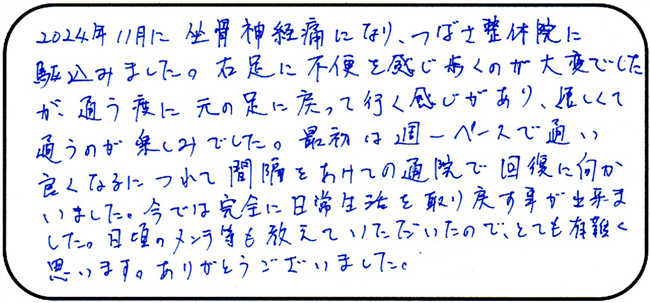 2024年11月に 坐骨神経痛になり、つばさ整体院に
駆込みました。右足に不便を感じ歩くのが大変でした
が、通う度に元の足に戻って行く感じがあり、嬉しくて
通うのが楽しみでした。最初は週一ペースで通い
良くなるにつれて間隔をあけての通院で回復に向か
いました。今では完全に日常生活を取り戻す事が出来ま
した。日頃のメンテ等も教えていただいたので、とても有難く
思います。ありがとうございました。